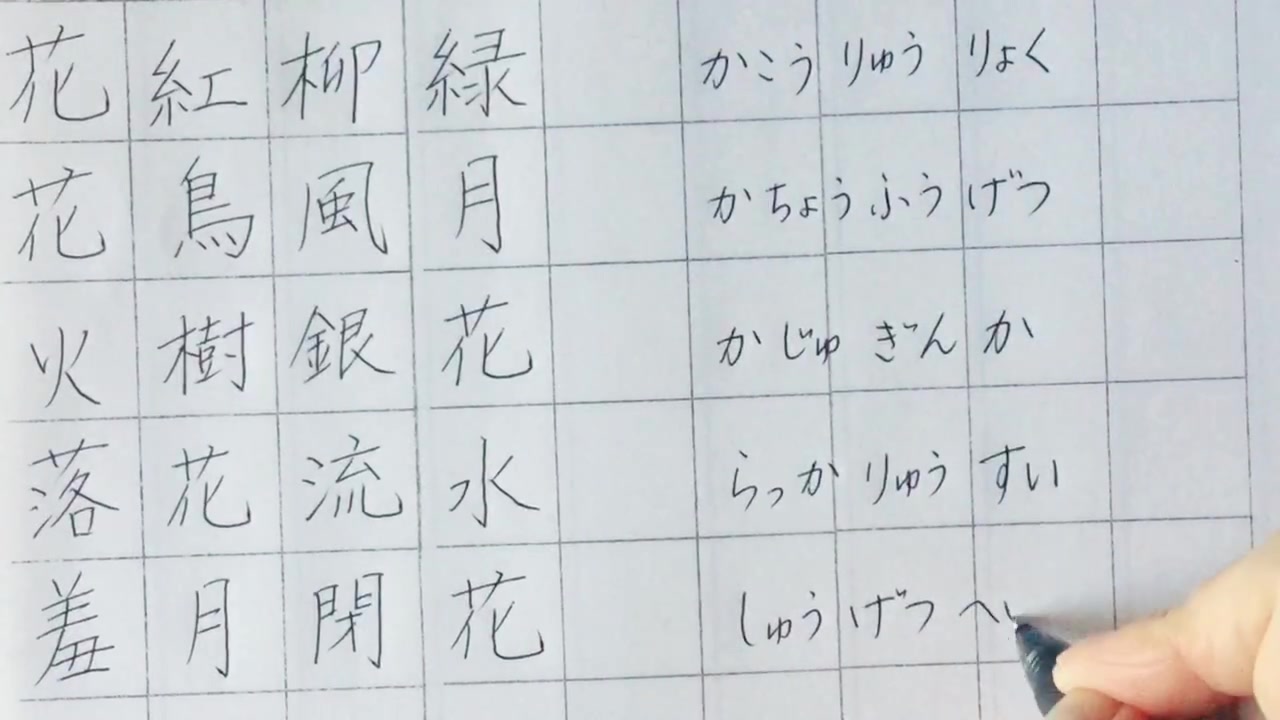 花紅柳緑 かこうりゅうりょく
花鳥風月 かちょうふうげつ
火樹銀花 かじゅぎんか
落花流水 らっかりゅうすい
羞月閉花 しゅうげつへい